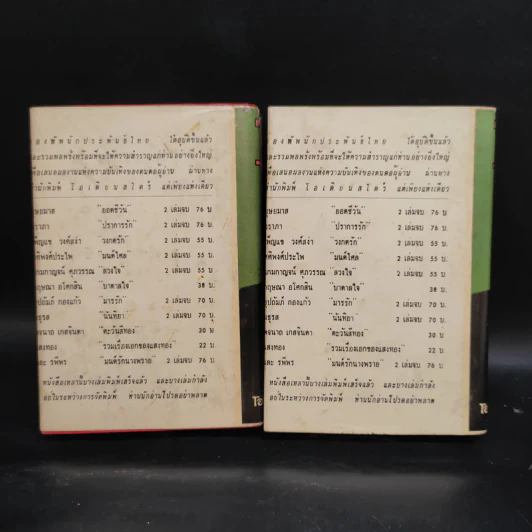 องทัพนักประพันธ์ไทย ได้อุบัติขึ้นแล้ว
และรวมพลพรั่งพร้อมที่จะให้ความสำราญแก่ท่านอย่างยิ่งใหญ่
เพื่อเสนอผลงานแห่งความบันเทิงของตนต่อผู้อ่าน ผ่านทาง
สำนักพิมพ์ โอเดียนสโตร์ แต่เพียงแห่งเดียว
"ยอดชีวัน" 2 เล่มจบ 76 บ.
ราภา "ปราการรัก" 2 เล่มจบ 76 บ.
เพ็ญแข วงศ์สง่า "วงกตรัก" 2 เล่มจบ 55 บ.
"มนต์ไศล" 2 เล่มจบ 55 บ.
ศุภวรรณ "ลวงใจ" 2 เล่มจบ 55 บ
กฤษณา อโศกสิน "บาดาลใจ" 38 บ.
กองแก้ว "มารรัก" 2 เล่มจบ 70 บ.
"นันทิยา" 2 เล่มจบ 70 บ.
เกสจินดา "ตะวันสีทอง" 30 บ
แสงทอง "รวมเรื่องเอกของแสงทอง" 22 บ
และ รพีพร "มนต์รักนางพราย" 2 เล่มจบ 76 บ
หนังสือเหล่านี้บางเล่มพิมพ์เสร็จแล้ว และบางเล่มกำลัง
อยู่ในระหว่างการจัดพิมพ์ ท่านนักอ่านโปรดอย่าพลาด
องทัพนักประพันธ์ไทย ได้อุบัติขึ้นแล้ว
และรวมพลพรั่งพร้อมที่จะให้ความสำราญแก่ท่านอย่างยิ่งใหญ่
เพื่อเสนอผลงานแห่งความบันเทิงของตนต่อผู้อ่าน ผ่านทาง
สำนักพิมพ์ โอเดียนสโตร์ แต่เพียงแห่งเดียว
"ยอดชีวัน" 2 เล่มจบ 76 บ.
ราภา "ปราการรัก" 2 เล่มจบ 76 บ.
เพ็ญแข วงศ์สง่า "วงกตรัก" 2 เล่มจบ 55 บ.
"มนต์ไศล" 2 เล่มจบ 55 บ.
ศุภวรรณ "ลวงใจ" 2 เล่มจบ 55 บ
กฤษณา อโศกสิน "บาดาลใจ" 38 บ.
กองแก้ว "มารรัก" 2 เล่มจบ 70 บ.
"นันทิยา" 2 เล่มจบ 70 บ.
เกสจินดา "ตะวันสีทอง" 30 บ
แสงทอง "รวมเรื่องเอกของแสงทอง" 22 บ
และ รพีพร "มนต์รักนางพราย" 2 เล่มจบ 76 บ
หนังสือเหล่านี้บางเล่มพิมพ์เสร็จแล้ว และบางเล่มกำลัง
อยู่ในระหว่างการจัดพิมพ์ ท่านนักอ่านโปรดอย่าพลาด